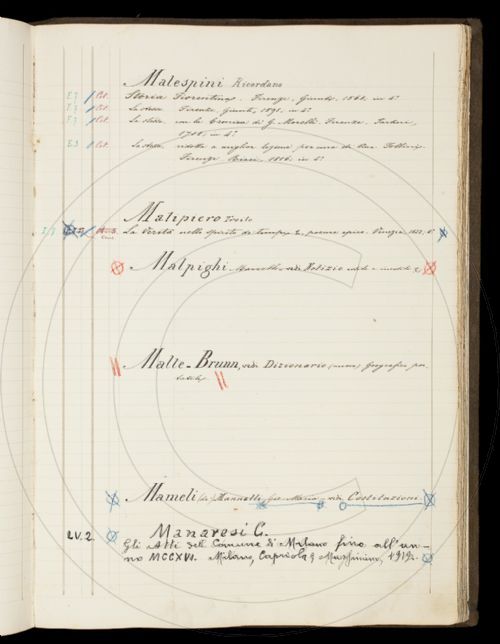 Malespini Ricordano
E.3 Let. Storia Fiorentina. Firenze, Giunti, 1568, in 4º
E.3 Let. La stessa Firenze, Giunti, 1598, in 4º
E.3 Let. La stessa, con la Cronica di G. Morelli. Firenze, Tartini,
1718, in 4º
E.3 Let. La stessa, ridotta a miglior lezione
Firenze Ricci, 1816, in 4º
Malipiero Troilo
La Verità nello spirito de' tempi, poema epico. Venezia
Malpighi Marcello, vedi Notizie edite e inedite
Malte-Brunn, vedi Dizionario (nuovo) Geografico por
tatile
Mameli Mannelli, Gio. Maria vedi Costituzioni
LV.2. Manaresi C.
Gli Atti del Comune di Milano fino all'an-
no MCCXVI. Milano, Capriolo & Massimino, 1919.